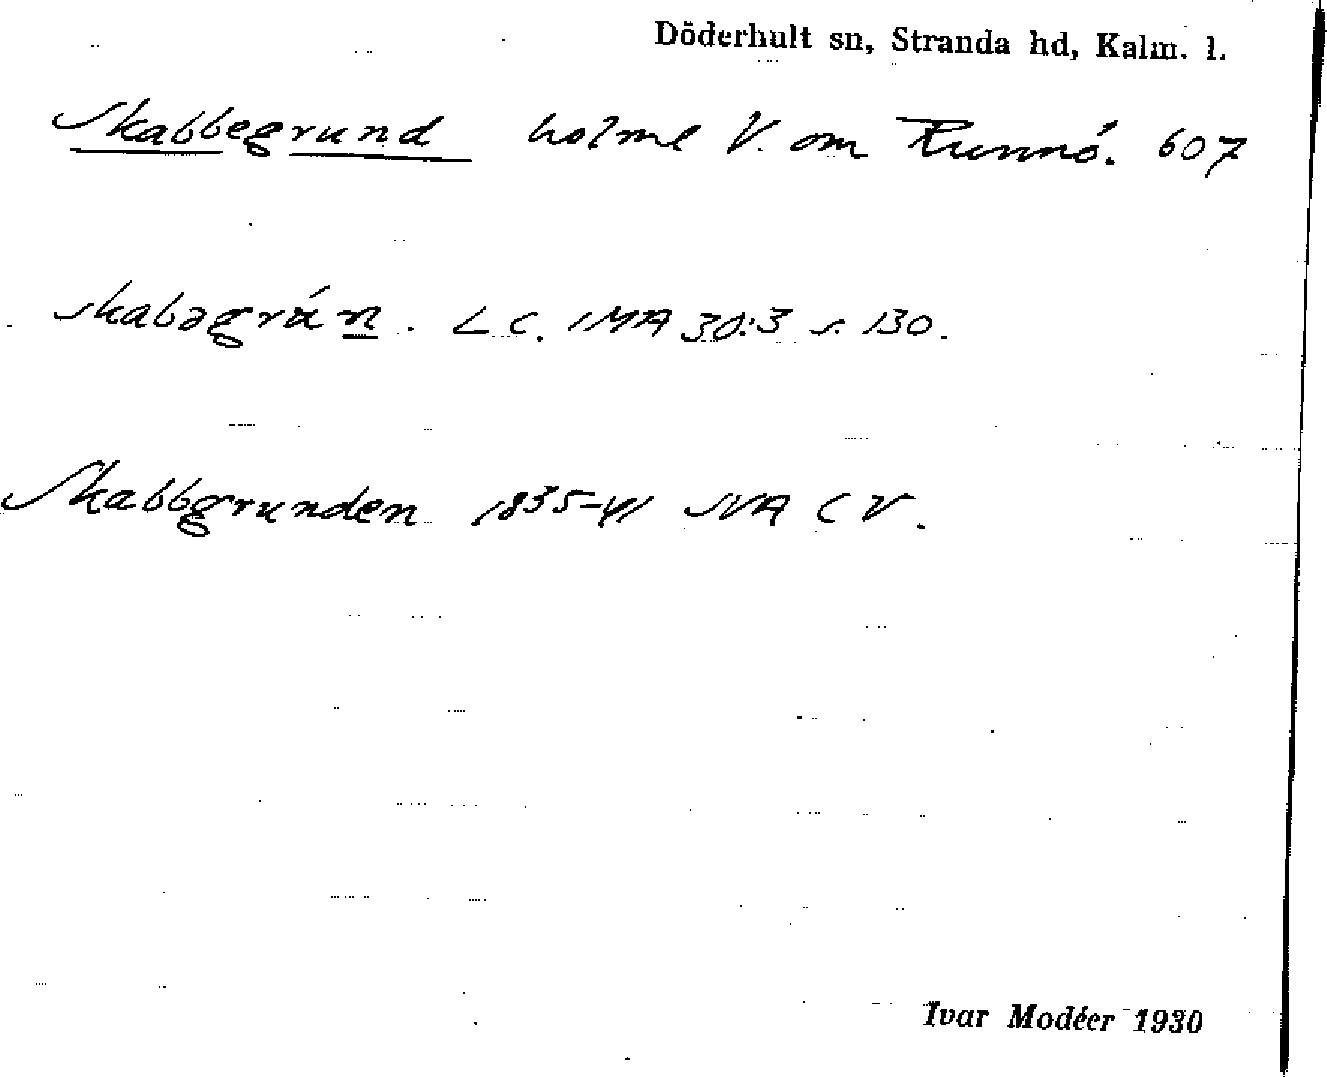 Döderhult sn, Stranda hd, Kalm. l.
Skabbegrund holme V. om Runnö. 607
skabəgrún. L C. IMA 30:3 s. 130.
Skabbgrunden 1835-41 SVA C V.
Ivar Modéer 1930